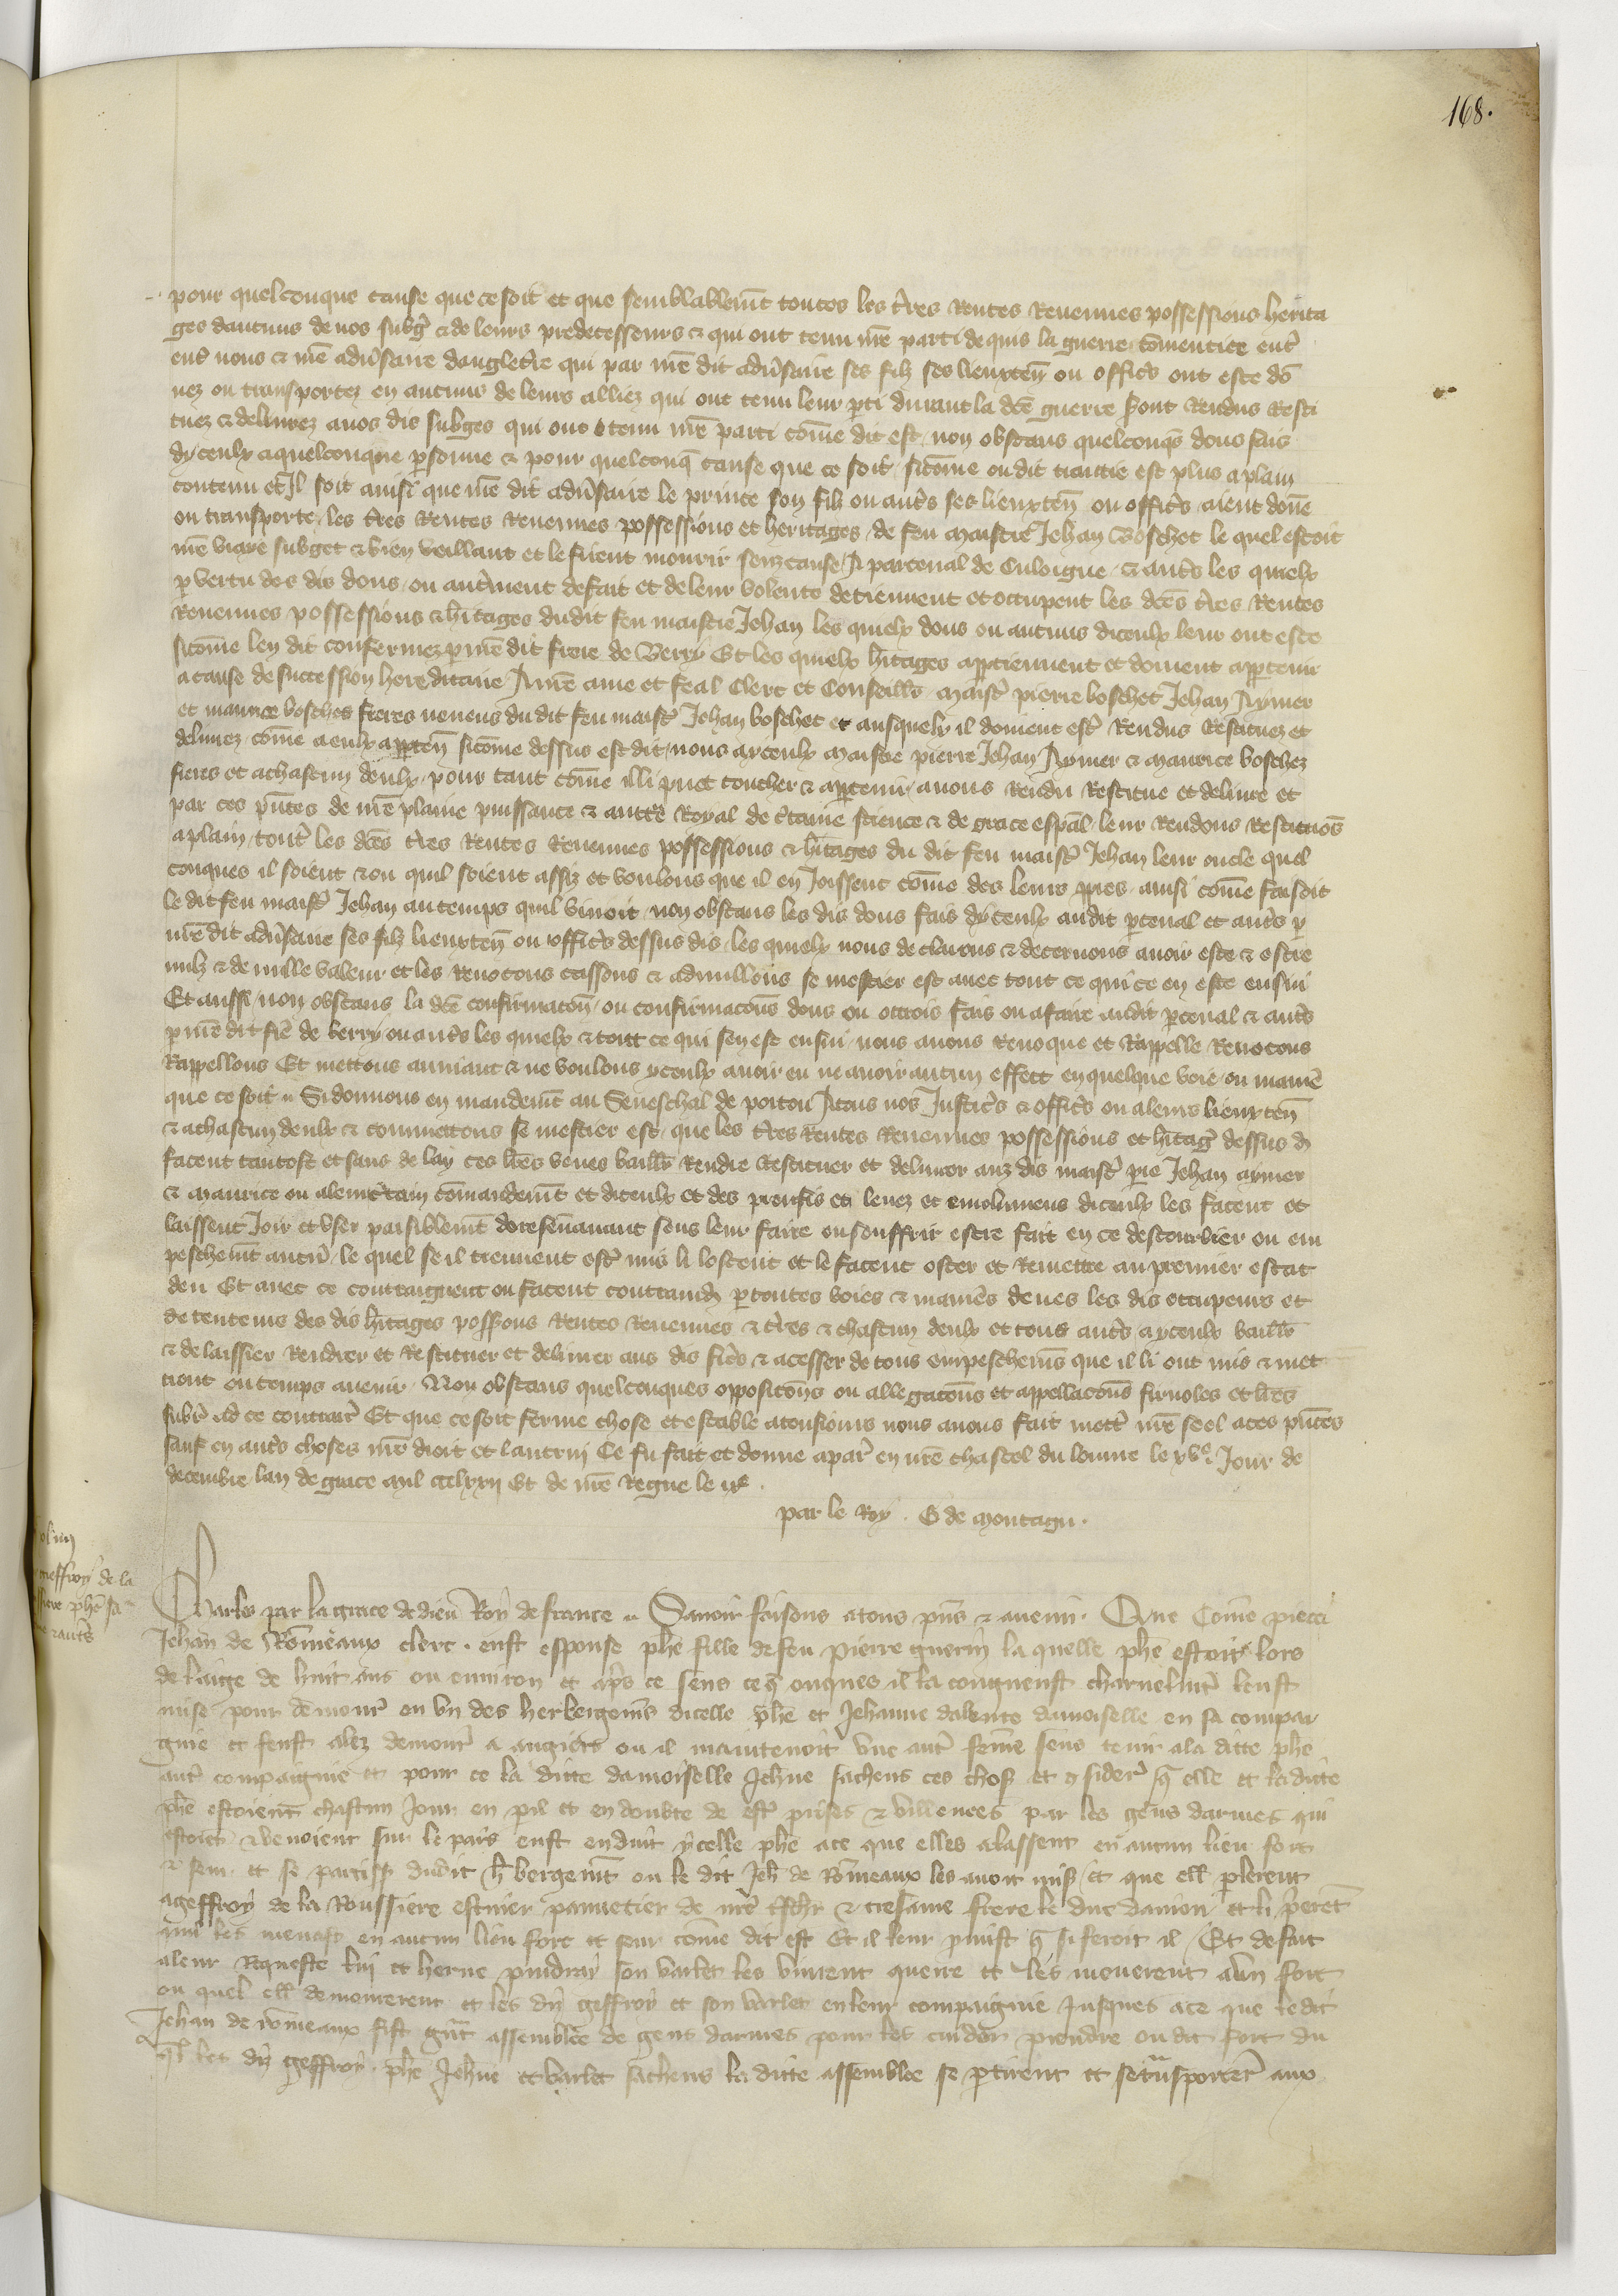 168.
pour quelconque cause que ce soit et que semblablemt toutes les tres Rentes Revenues possessions herita
ges daucuns de nos subg & de leurs predecesseurs & qui ont tenu nre parti depuis la guerre commencee entr
entr nous & nre advsaire dangletre qui par nre dit advsaire ses filz ses lieuxten ou offics ont este do
nez ou transportez en aucuns de leurs alliez qui ont tenu leur pti durant la dce guerre sont Rendus Resti
tuez & delivrez a nos dis subges qui ont tenu nre parti come dit est non obstans quelconqs dons fais
dyceulx a quelconque psonne & pour quelconq cause que ce soit sicome ou dit traittie est plus a plain
contenu et Il soit ainsi que nre dit advsaire le prince son filz ou autrs ses lieuxten ou offics aient done
ou transporte les tres Rentes Revenues possessions et heritages de feu maistre Jehan Boschet le quel estoit
nre vraye subget & bien veillant et le firent mourir senz cause A parcenal de Culoigne & autrs les quielx
p vertu des dis dons ou autrement de fait et de leur volente detiennent et occupent les dces tres Rentes
Revenues possessions & hitages dudit feu maistre Jehan les quielx dons ou aucuns diceulx leur ont este
sicome len dit confermez p nre dit frere de Berry Et les quielx hitages apptiennent et doivent apptenir
a cause de succession hereditaire A nre ame et feal Clerc et Conseillr maistr pierre boschet Jehan Aymer
et maurice bosches freres neveus du dit feu maistr Jehan boschet et ausquelx il doivent estr Rendus Restituez et
delivrez come a eulx appten sicome dessus est dit nous a yceulx maistre pierre Jehan Aymer & maurice boschez
freres et a chascun deulx pour tant come il li puet toucher & apptenir avons Rendu Restitue et delivre et
par ces pntes de nre plaine puissance & auttre Royal de ctaine science & de grace espal leur Rendons Restituos
a plain toutr les dces tres Rentes Revenues possessions & hitages du dit feu maistr Jehan leur oncle quel
conques il soient & ou quil soient assiz et voulons que il en Joissent come des leurs ppres ainsi come faisoit
le dit feu maistr Jehan au temps quil vivoit non obstans les dis dons fais dyceulx audit pcenal et autrs p
nre dit advsaire ses filz lieuxten ou offics dessus dis les quielx nous declairons & decernons avoir este & estre
nulz & de nulle valeur et les Revocons cassons & adnullons se mestier est avec tout ce qui ce en este ensui
Et aussi non obstans la dce confirmacon ou confirmacons dons ou ottrois fais ou a faire audit pcenal & autrs
p nre dit fre de berry ou autrs les quielx & tout ce qui sen est ensui nous avons Revoque et Rappelle Revocons
Rappellons Et mettons au niant & ne voulons yceulx avoir eu ne avoir aucun effect en quelque voie ou manie
que ce soit Si donnons en mandemt au Seneschal de poitou A tous nos Justics & offics ou a leurs lieuxten
& a chascun deulx & commettons se mestier est que les tres Rentes Revenues possessions et hitag dessus d
facent tantost et sans delay ces lres veues baillr Rendre Restituer et delivrer auz dis maistr pie Jehan aymer
& maurice ou a leur ctain comandemt et diceulx et des proufis et levez et emolumens diceulx les facent et
laissent Joir et user paisiblemt doresenavant sens leur faire ou souffrir estre fait en ce destourbier ou em
peschemt aucun le quel se il trenvent estr mis li lostent et le facent oster et Remettre au premier estat
deu Et avec ce contraignent ou facent contraindr p toutes voies & manies deues les dis occupeurs et
detenteurs des dis hitages possons Rentes Revenues & tres & chascun deulx et tous autrs a yceulx baillr
& delaissier Rendrer et Restituer et delivrer aus dis frers & a cesser de tous empeschems que il li ont mis & met
tront ou temps avenir Non obstans quelconques oppositons ou allegacons et appellacons frivoles et lres
subr a ce contrair Et que ce soit ferme chose et estable a tousiours nous avons fait mettr nre seel a ces pntes
sauf en autrs choses nre droit et lautrui Ce fu fait et donne a par en nre chastel du louvre le xve Jour de
decembre lan de grace mil ccclxxij Et de nre Regne le ixe
par le Roy . G de montagu .
effroy de la
phe
& autrs
Charles par la grace de dieu Roy de france Savoir faisons a tous pns & avenir . Que Come pieca
Jehan de Romeaux clerc eust espouse phe fille de feu pierre guerin la quelle phe estoit lors
de laige de huit ans ou environ et aprs ce sens ce q onques il la congneust charnelmt leust
mise pour demourr en un des herbergems dicelle phe et Jehanne dabente damoiselle en sa compai
gnie et senst alez demourr a angiers ou il maintenoit une autr feme sens tenir a la ditte phe
autr compaignie et pour ce la ditte damoiselle Jehne sachens ces chos et gsiderr q elle et la ditte
phe estoient chascun Jour en pil et en doubte de estr prises & villences par les gens darmes qui
estoiet & venoient sur le pais eust enduit ycelle phe a ce que elles alassent en aucun lieu fort
& seur et se partiss dudit hbergemt ou le dit Jeh de Romeaux les avoit mis et que ell plerent
a geffroy de la Roussiere escuier pannetier de nre trescher & tresame frere le duc danjou et li prieret
quil les menast en aucun lieu fort et seur come dit est Et il leur pmist q si feroit il Et de fait
a leur Requeste lui et herve son varlet les vindrent querre et les menerent a un fort
ou quel ell demourerent et les diz geffroy et son varlet en leur compaignie Jusques a ce que ledit
Jehan de romeaux fist grat assemblee de gens darmes pour les cuider prendre ou dit fort du
ql les diz geffroy phe Jehne et varlet sachens la ditte assemblee se ptirent et se trasporter aux